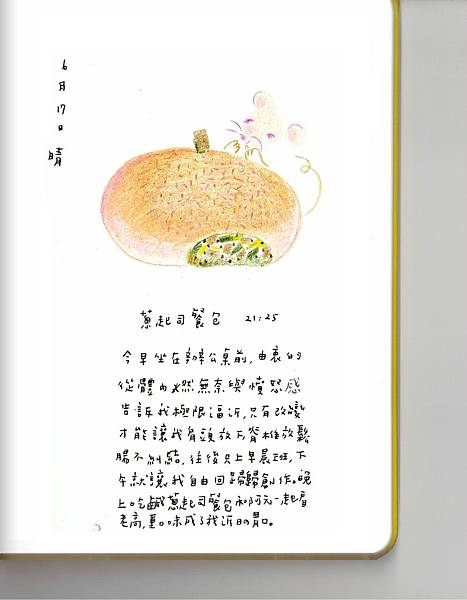 6月17日 晴
蔥起司餐包 21:25
今早坐在辦公桌前,由衷的
從體內燃無奈與憤怒感
告訴我極限逼近,只有改變
才能讓我肩頭放下脊椎放鬆
腸不糾結,往後只上早晨班,下
午就讓我自由回歸歸創作。晚
上吃鹹蔥起司餐包和阿元一起眉
老高,重口味成了我近日的胃口。